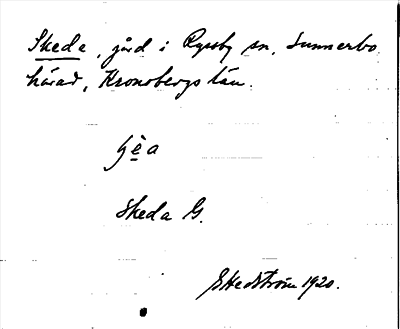 Skeda, gård i Ryssby sn, Sunnerbo
härad, Kronobergs län.
Skeda G.
G Hedström 1920.